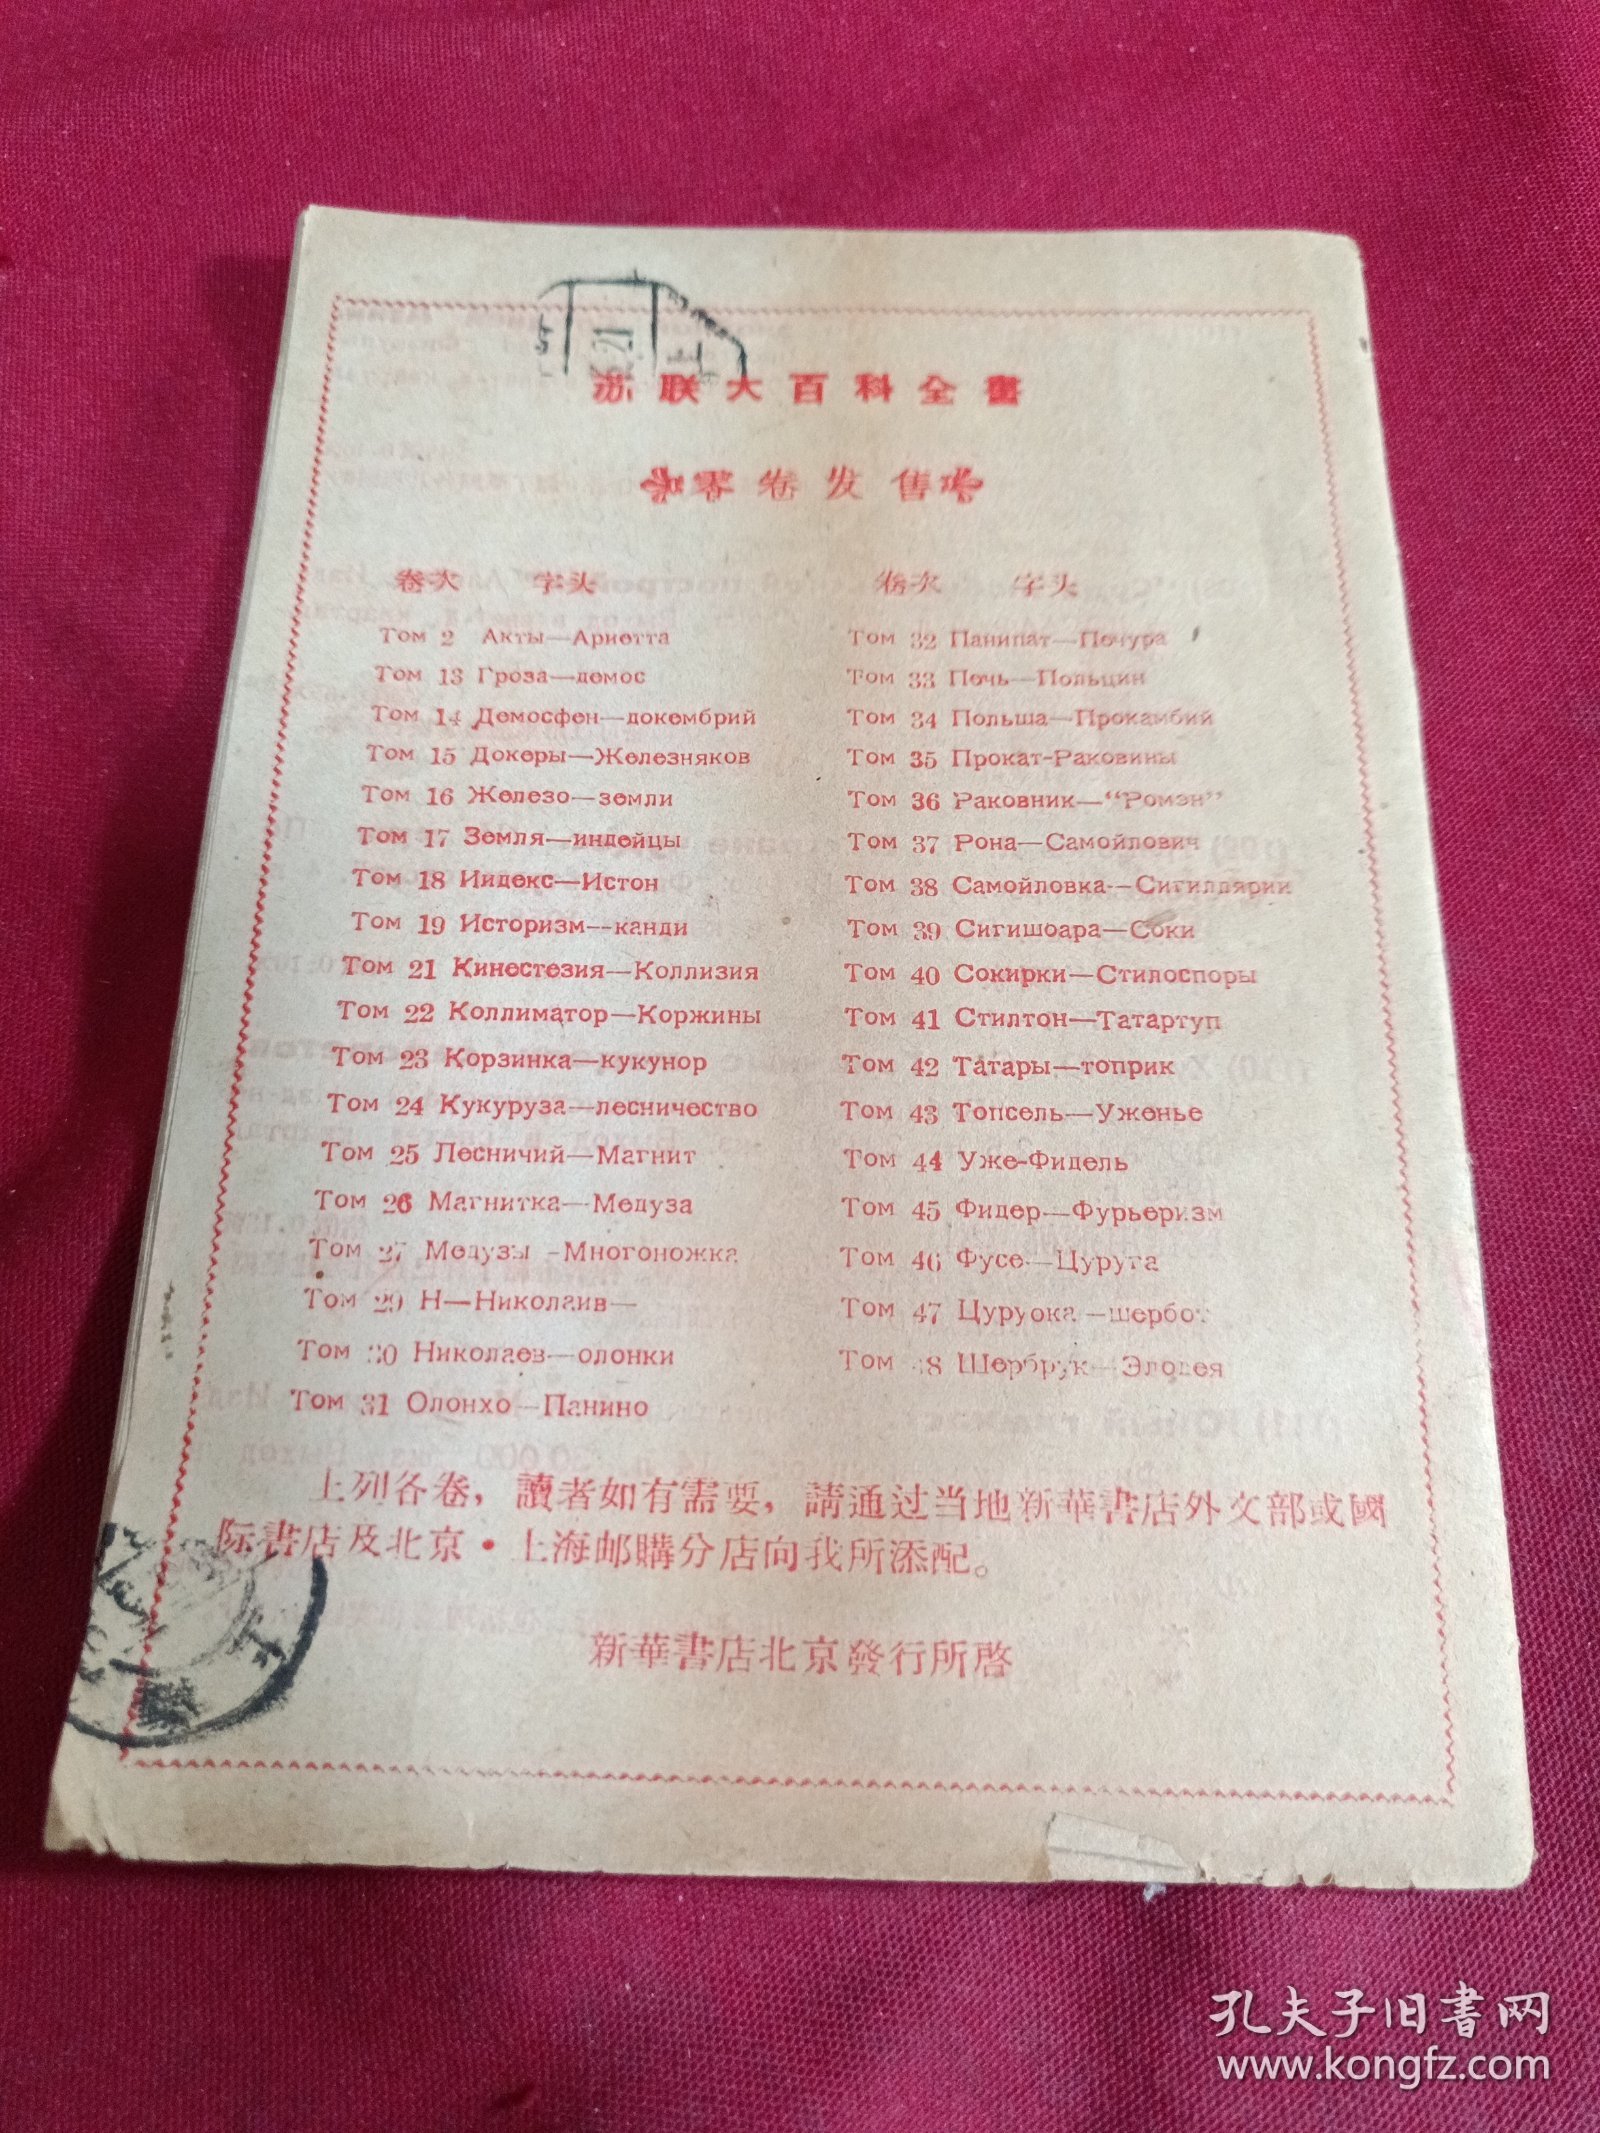 苏联大百科全書
零卷发售
卷次 字头
Том 2 Акты—Ариетта
Том 13 Гроза—демос
Том 14 Демосфен—докембрий
Том 15 Докеры—Железняков
Том 16 Железо—земли
Том 17 Земля—индейцы
Том 18 Индекс—Истон
Том 19 Историзм—канди
Том 21 Кинестезия—Коллизия
Том 22 Коллиматор—Коржины
Том 23 Корзинка—кукунор
Том 24 Кукуруза—лесничество
Том 25 Лесничий—Магнит
Том 26 Магнитка—Медуза
Том 27 Медузы-Многоножка
Том 29 Н—Николаив—
Том 30 Николаев—олонки
Том 31 Олонхо—Панино
卷次 字头
Том 32 Панипат—Печура
Том 33 Печь—Польцин
Том 34 Польша—Прокамбий
Том 35 Прокат-Раковины
Том 36 Раковник—“Ромэн”
Том 37 Рона—Самойлович
Том 38 Самойловка—Сигиллярии
Том 39 Сигишоара—Соки
Том 40 Сокирки—Стилоспоры
Том 41 Стилтон—Татартуп
Том 42 Татары—топрик
Том 43 Топсель—Уженье
Том 44 Уже-Фидель
Том 45 Фидер—Фурьеризм
Том 46 Фусе—Цуруга
Том 47 Цуруока—шербот
Том 48 Шербрук—Элодея
上列各卷，讀者如有需要，請通过当地新華書店外文部或國
际書店及北京·上海邮購分店向我所添配。
新華書店北京發行所啓
孔夫子旧書网
www.kongfz.com